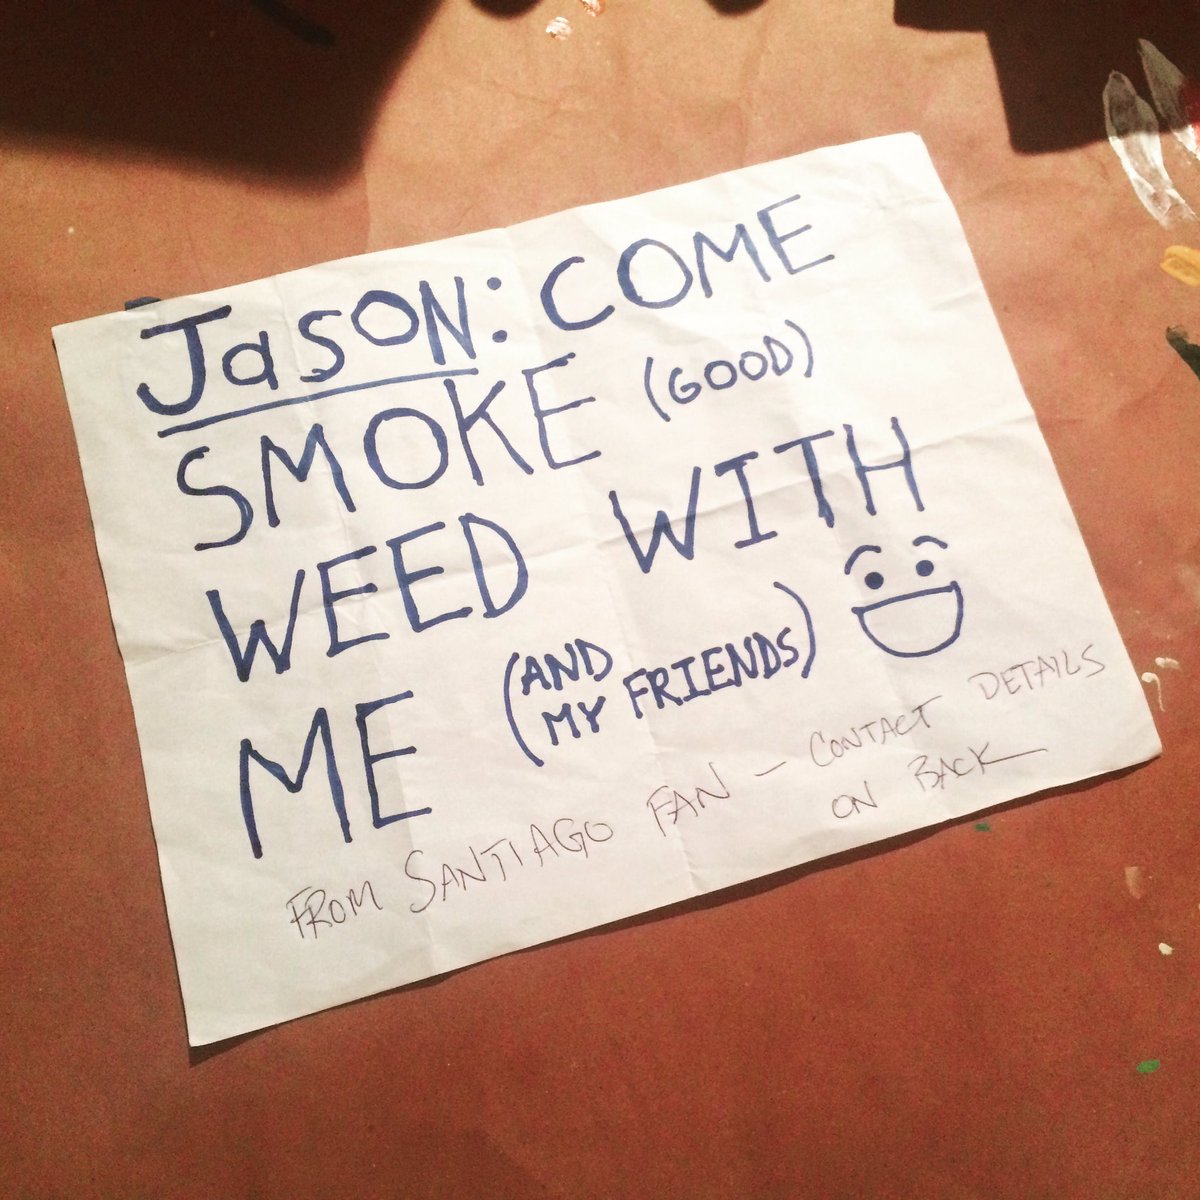 JasoN: COME
SMOKE (GOOD)
WEED WITH
ME (AND MY FRIENDS)
FROM SANTIAGO FAN - CONTACT DETAILS
ON BACK